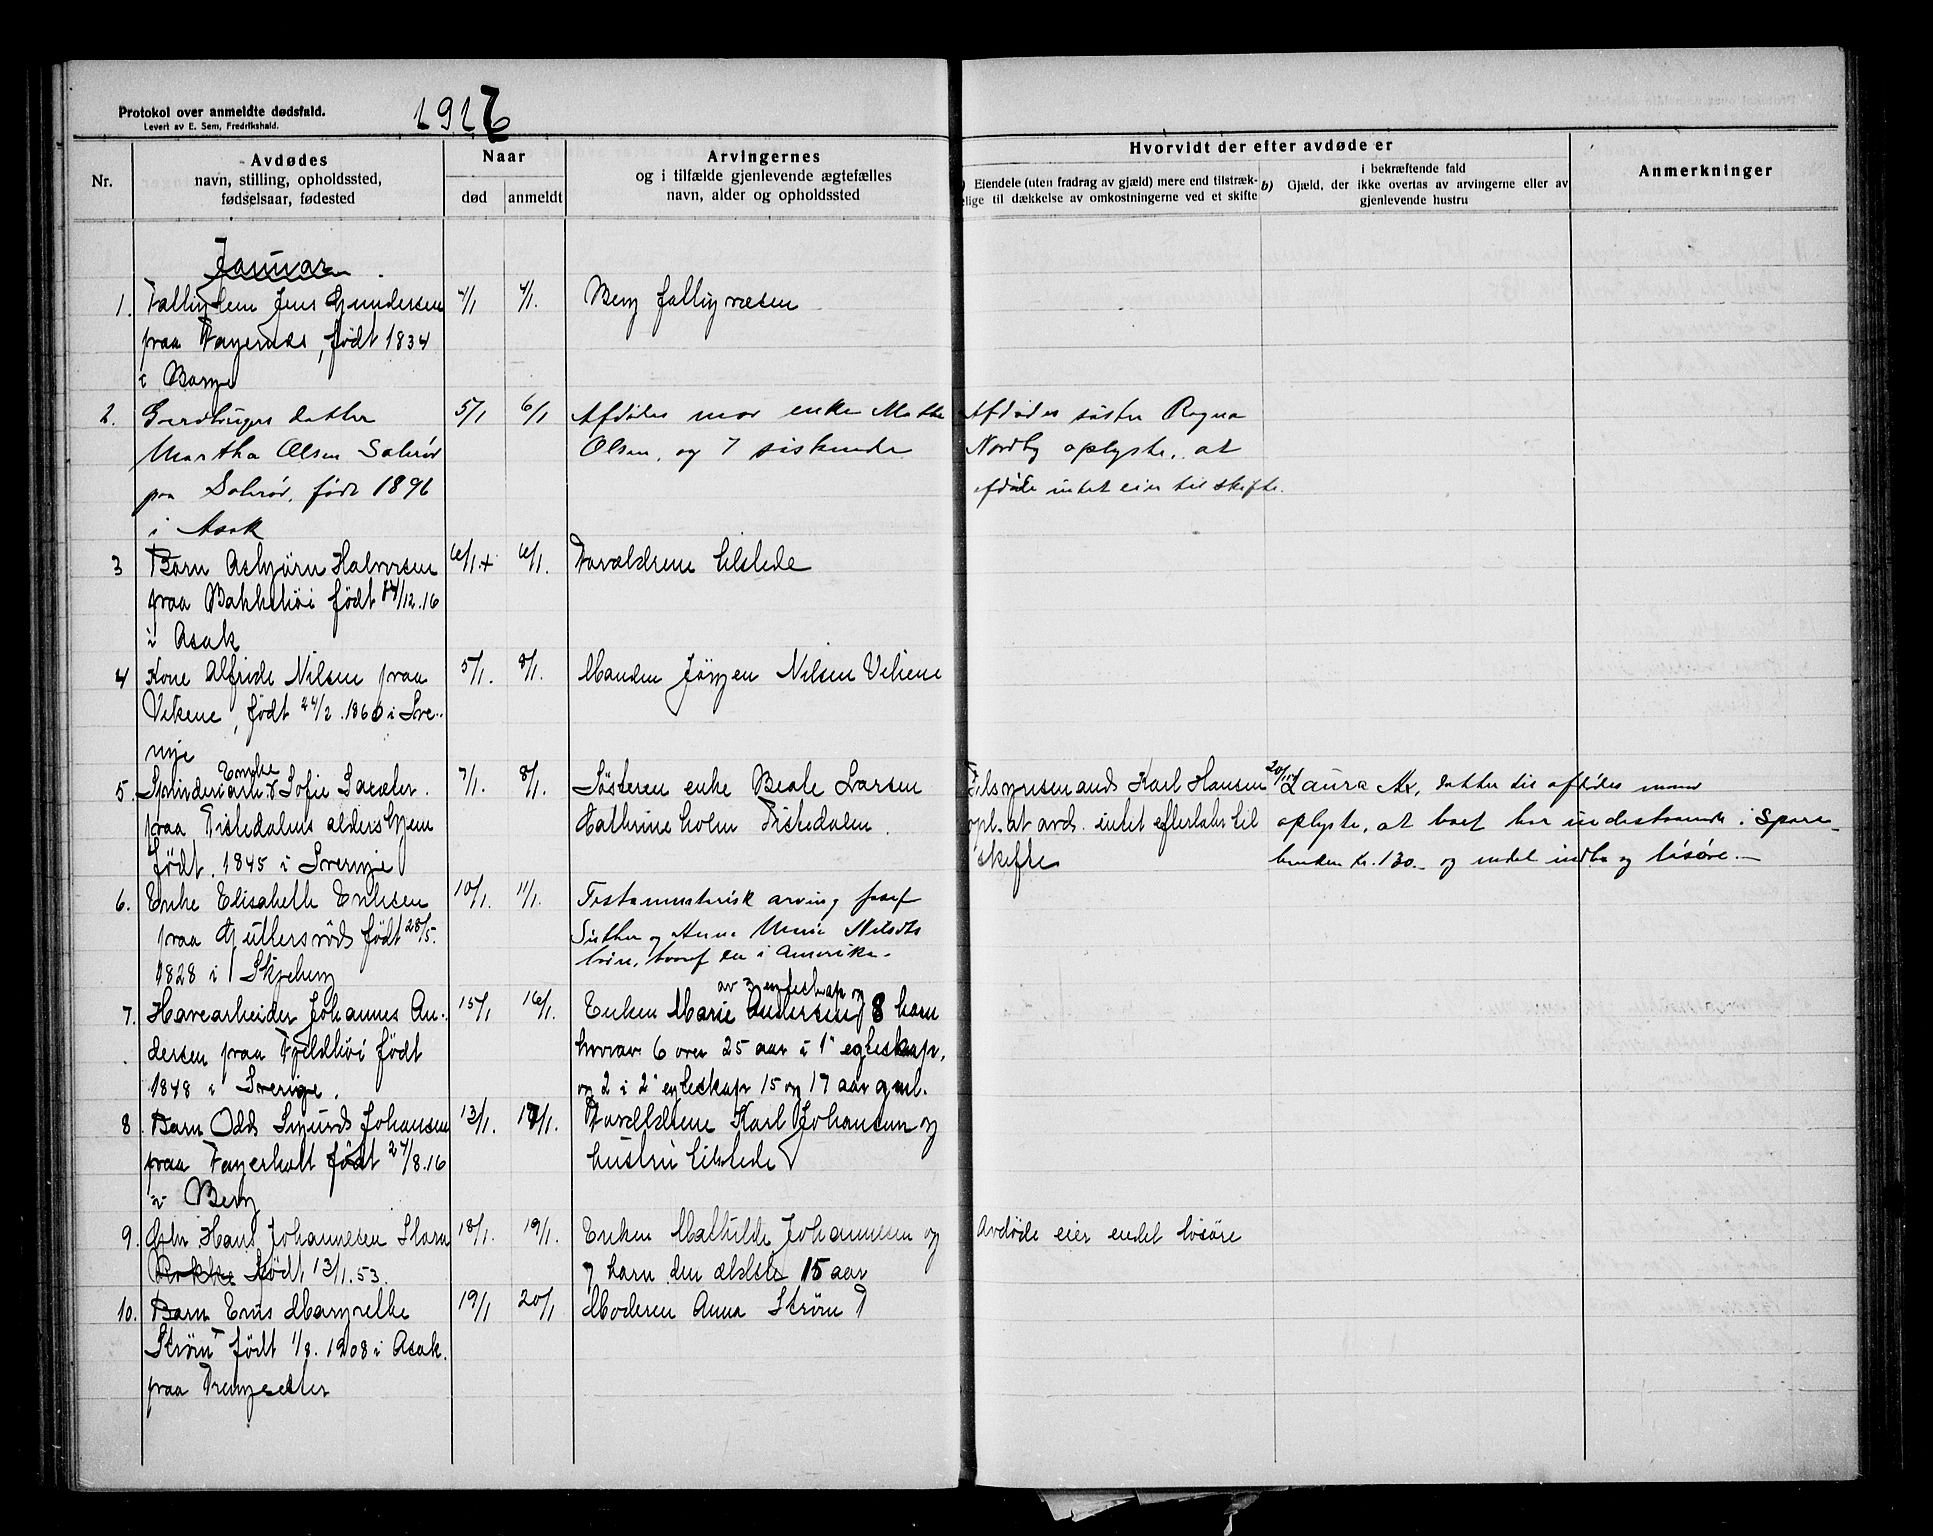 Protokol over anmeldte dødsfald.
Levert av E. Sem, Fredrikshald.
1917
Nr.
Avdødes
navn, stilling, opholdssted,
fødselsaar, fødested
Naar
død
anmeldt
Arvingernes
og i tilfælde gjenlevende ægtefælles
navn, alder og opholdssted
Hvorvidt der efter avdøde er
Eiendele (uten fradrag av gjæld) mere end tilstræk-
lige til dækkelse av omkostningerne ved et skifte
i bekræftende fald
b) Gjæld, der ikke overtas av arvingerne eller av
gjenlevende hustru
Anmerkninger
Januar
1. Fattiglem Jens Gundersen 4/1 4/1. Berg fattigvæsen
fraa, født 1834
i Borge
2. Gårdbruger datter 5/1 6/1 Afdødes mor enke Mathe Afdødes søster Ragna
Martha Olsen Solerød Olsen, og 7 søskende Nordby oplyste, at
paa Solerød, født 1896 afdøde intet eier til skifte.
i Asak
3 Barn Asbjørn Halvorsen 6/1 + 6/1. Forældrene tilstede
fraa Bakkehøi født 14/12.16
i Asak
4 Kone Alfride Nilsen fraa 5/1. 8/1. Manden Jørgen Nilsen Vekene
Vekene, født 24/2.1860 i Sve-
rige
Enke
5. Sofie 7/1. 8/1. Søsteren enke Beate Larsen Tilsynsmand Karl Hansen 20/1 Laura datter til afdødes mand
fraa Tistedalens aldershjem Kathrineholm Tistedalen. opl. at avd. intet efterlater til oplyste, at boet har indestaaende i Spare-
født. 1845 i Sverige skifte banken kr. 130.- og endel indbo og løsøre.-
6. Enke Elisabeth Eriksen 10/1. 11/1. Testamentarisk arving Josef
fraa Guttersrød født 28/5. og Anna Marie
1828 i Skjeberg hvoraf en i Amerika.
av 3 egteskap og
7. Havearbeider Johannes An- 15/1 16/1. Enken Marie Andersen 8 barn
dersen fraa Fjeldhøi født hvorav 6 over 25 aar i 1' egteskap,
1848 i Sverige. og 2 i 2' egteskap 15 og 17 aar gml.
8. Barn Odd Sigurd Johansen 13/1. 17/1. Forældrene Karl Johansen og
fraa Fagerholt født 27/8.16 hustru tilstede
i Berg
9. Gbr. Hans Johannesen 18/1. 19/1. Enken Mathilde Johannesen og Avdøde eier endel løsøre
født, 13/1.53. 7 barn den ældste 15 aar
10. Barn Enis Margrethe 19/1 20/1 Moderen Anna Strøm
Strøm født 1/8.1908 i Asak.
fraa